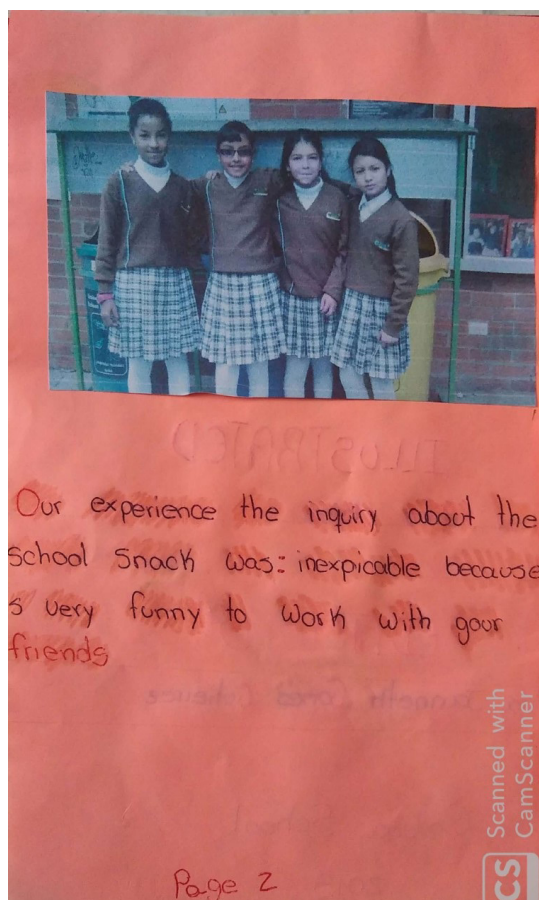 Our experience the inquiry about the
school snack was: inexpicable because
s very funny to work with gour
friends
Page 2
Scanned with
CamScanner
CS